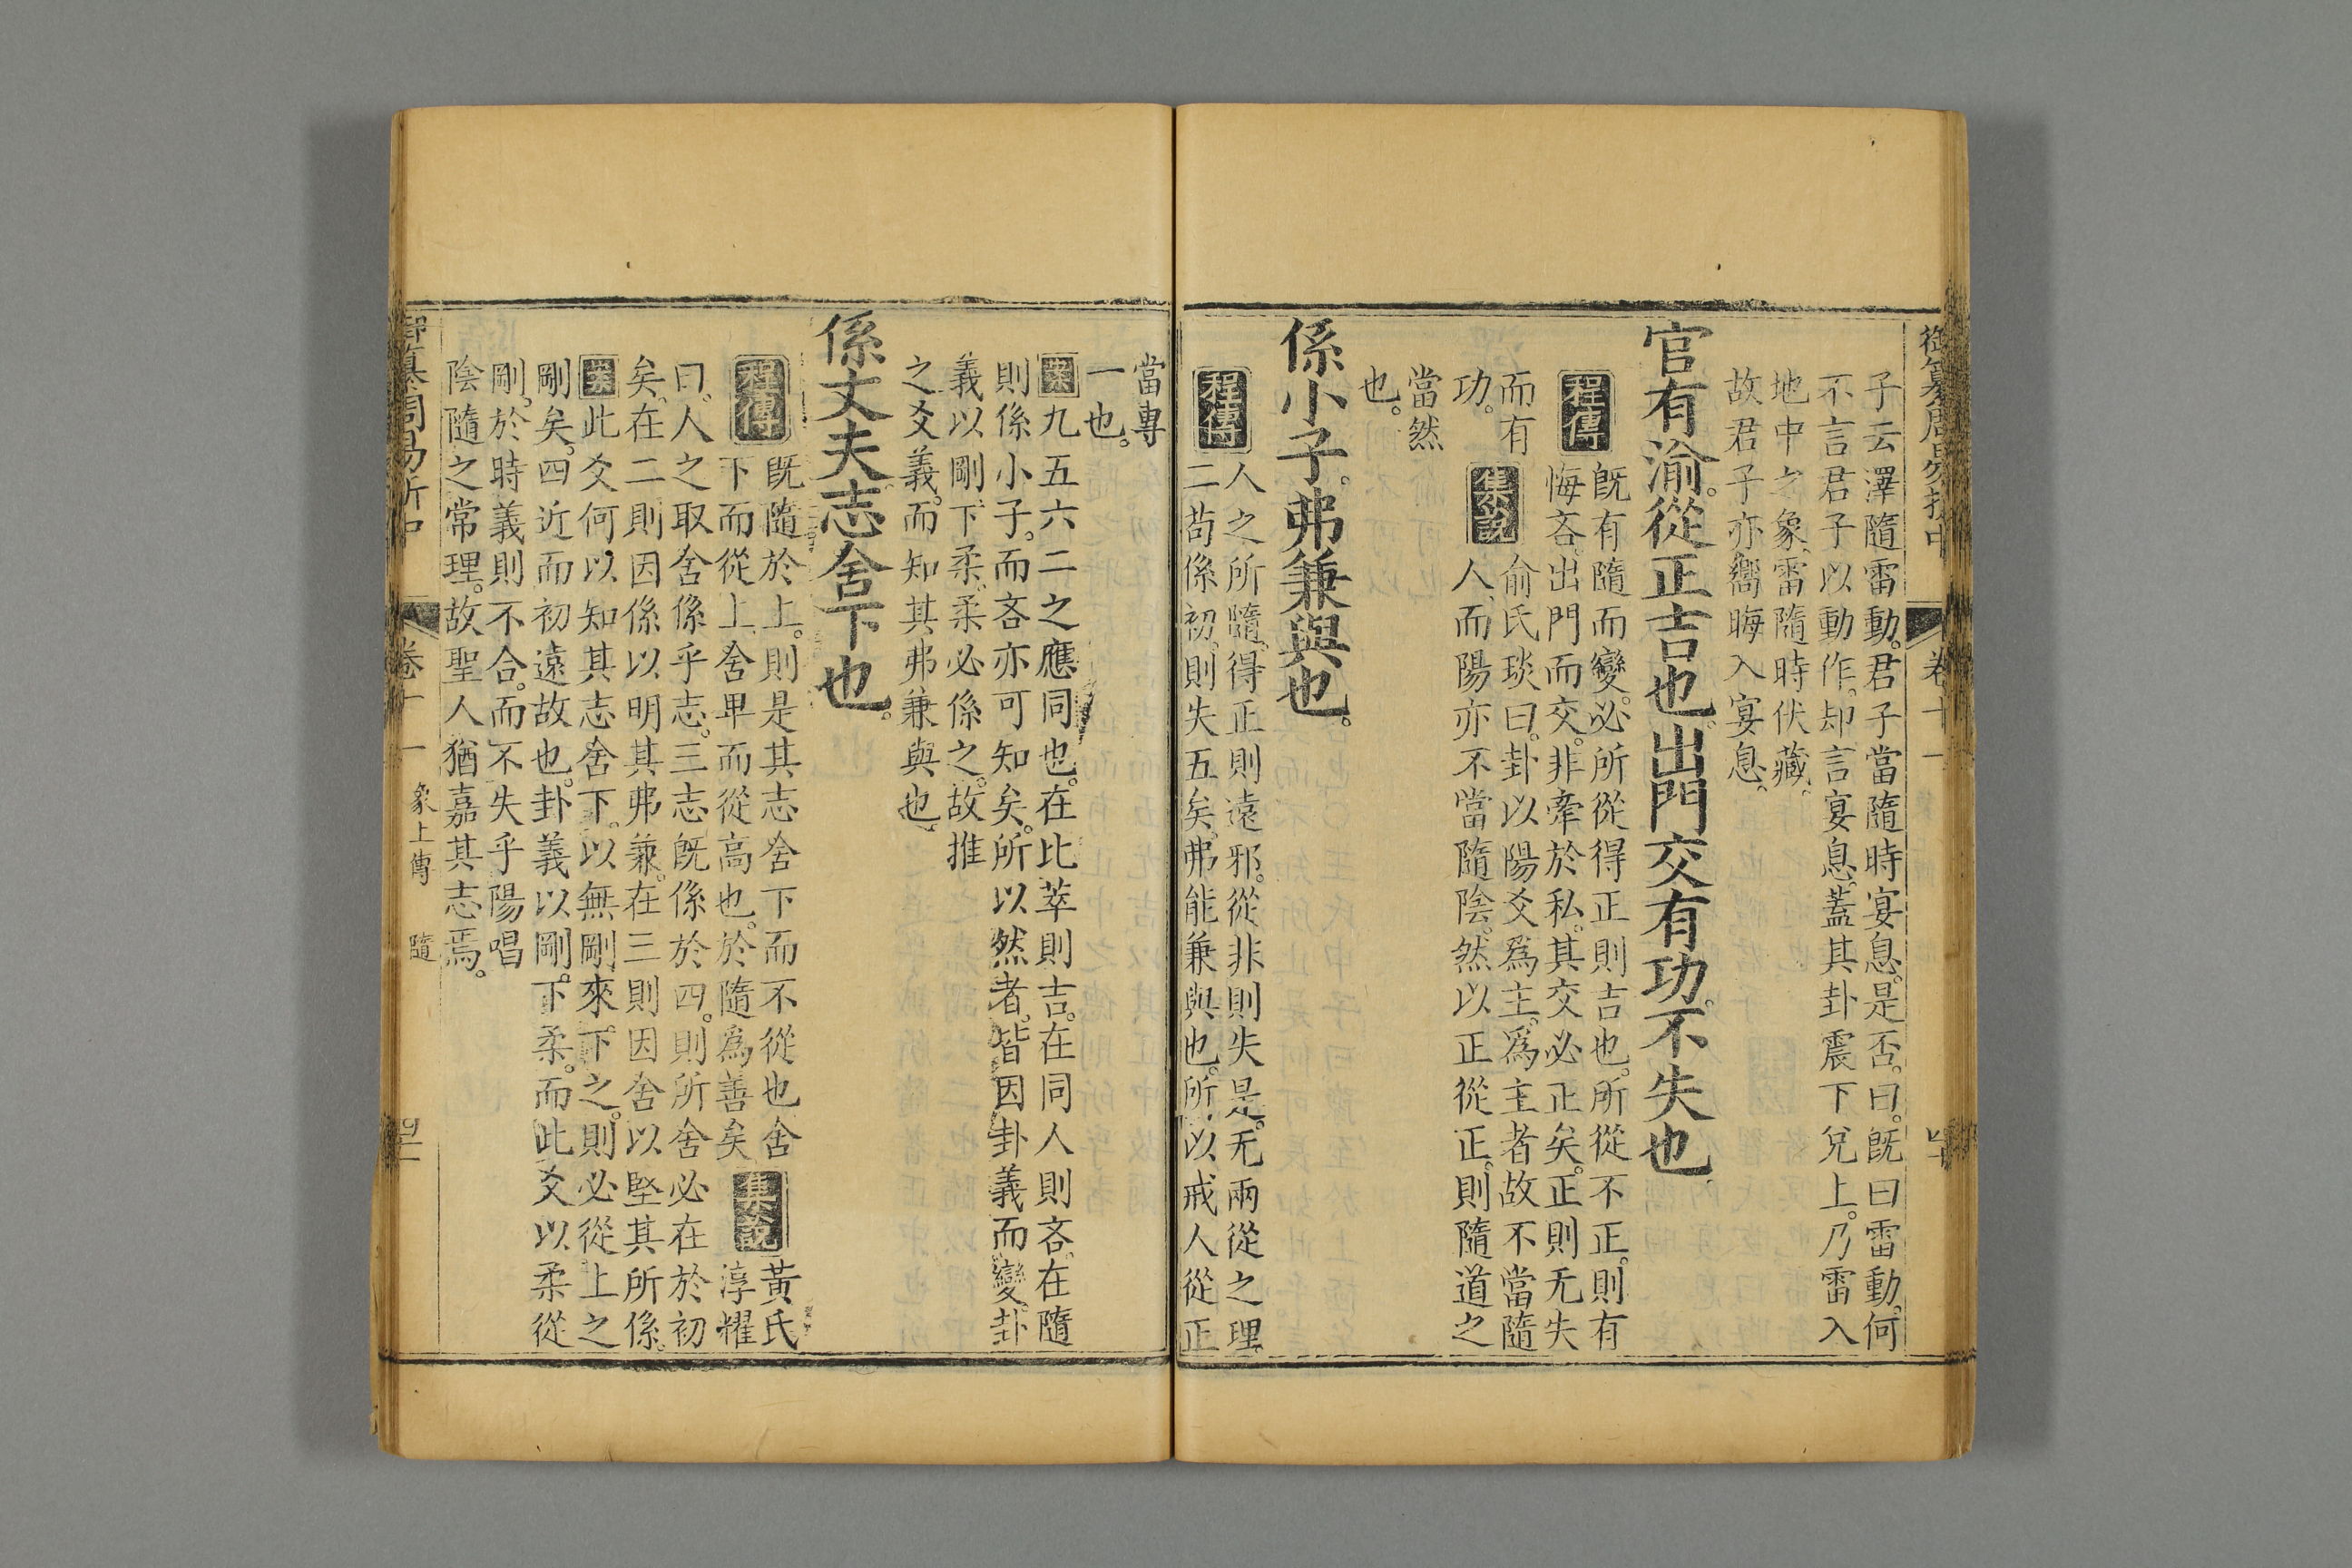 御纂周易折中 卷十一
子云澤隨雷動。君子當隨時宴息。是否。曰。旣曰雷動。何
不言君子以動作。却言宴息。蓋其卦震下兌上。乃雷入
地中之象。雷隨時伏藏。
故君子亦嚮晦入宴息。
官有渝。從正吉也。出門交有功。不失也。
程傳 旣有隨而變。必所從得正則吉也。所從不正。則有
悔吝。出門而交。非牽於私。其交必正矣。正則无失
而有
功。
集說 俞氏琰曰。卦以陽爻爲主。爲主者故不當隨
人。而陽亦不當隨陰。然以正從正。則隨道之
當然
也。
係小子。弗兼與也。
程傳 人之所隨。得正則遠邪。從非則失是。无兩從之理。
二苟係初。則失五矣。弗能兼與也。所以戒人從正
當專
一也。
案 九五六二之應同也。在比萃則吉。在同人則吝。在隨
則係小子。而吝亦可知矣。所以然者。皆因卦義而變。卦
義以剛下柔。柔必係之。故推
之爻義。而知其弗兼與也。
係丈夫。志舍下也。
程傳 旣隨於上。則是其志舍下而不從也。舍
下而從上。舍卑而從高也。於隨爲善矣。
集說 黃氏
淳耀
曰。人之取舍係乎志。三志旣係於四。則所舍必在於初
矣。在二則因係以明其弗兼。在三則因舍以堅其所係。
案 此爻何以知其志舍下。以無剛來下之。則必從上之
剛矣。四近而初遠故也。卦義以剛下柔。而此爻以柔從
剛。於時義則不合。而不失乎陽唱
陰隨之常理。故聖人猶嘉其志焉。
御纂周易折中 卷十一 象上傳 隨